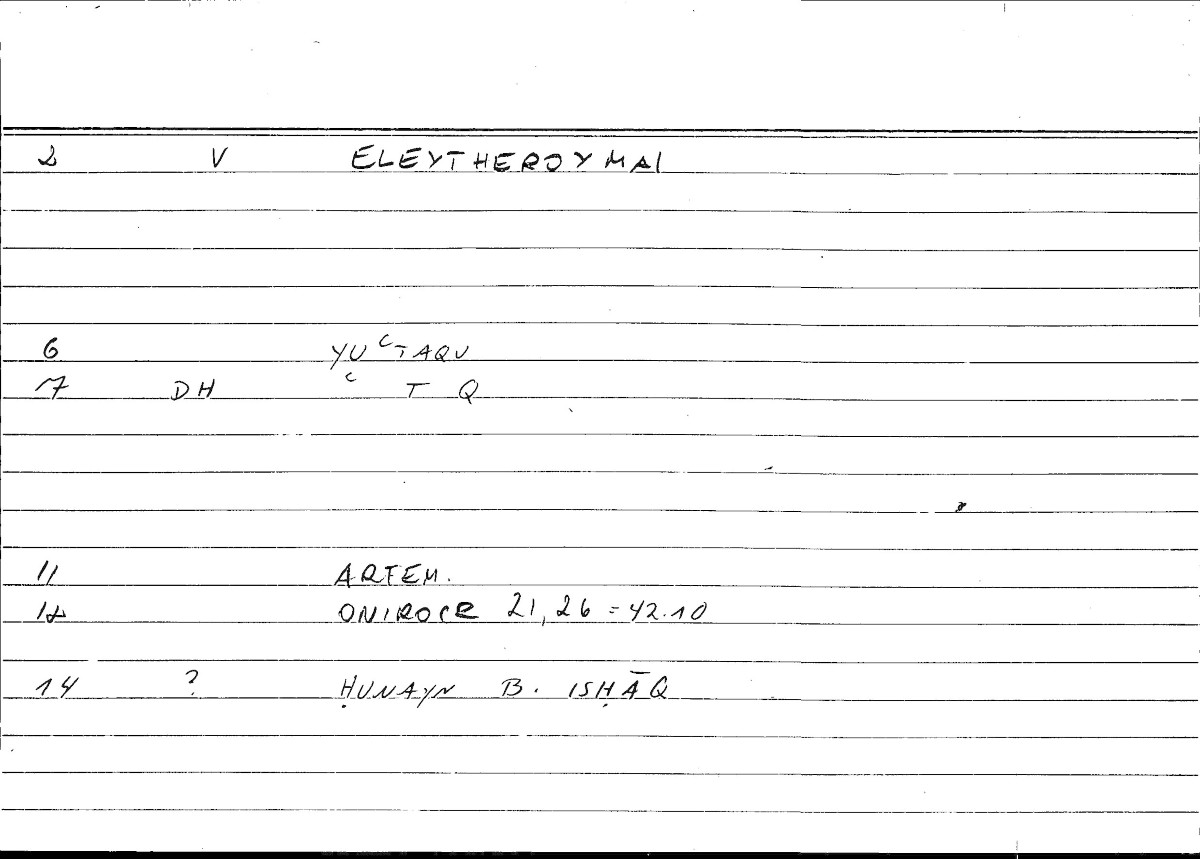 2 V ELEYTHEROYMAI
6 YU ʿTAQU
7 DH ʿ T Q
11 ARTEM.
12 ONIROCR 21,26 = 42.10
14 ? ḤUNAYN B. ISḤĀQ